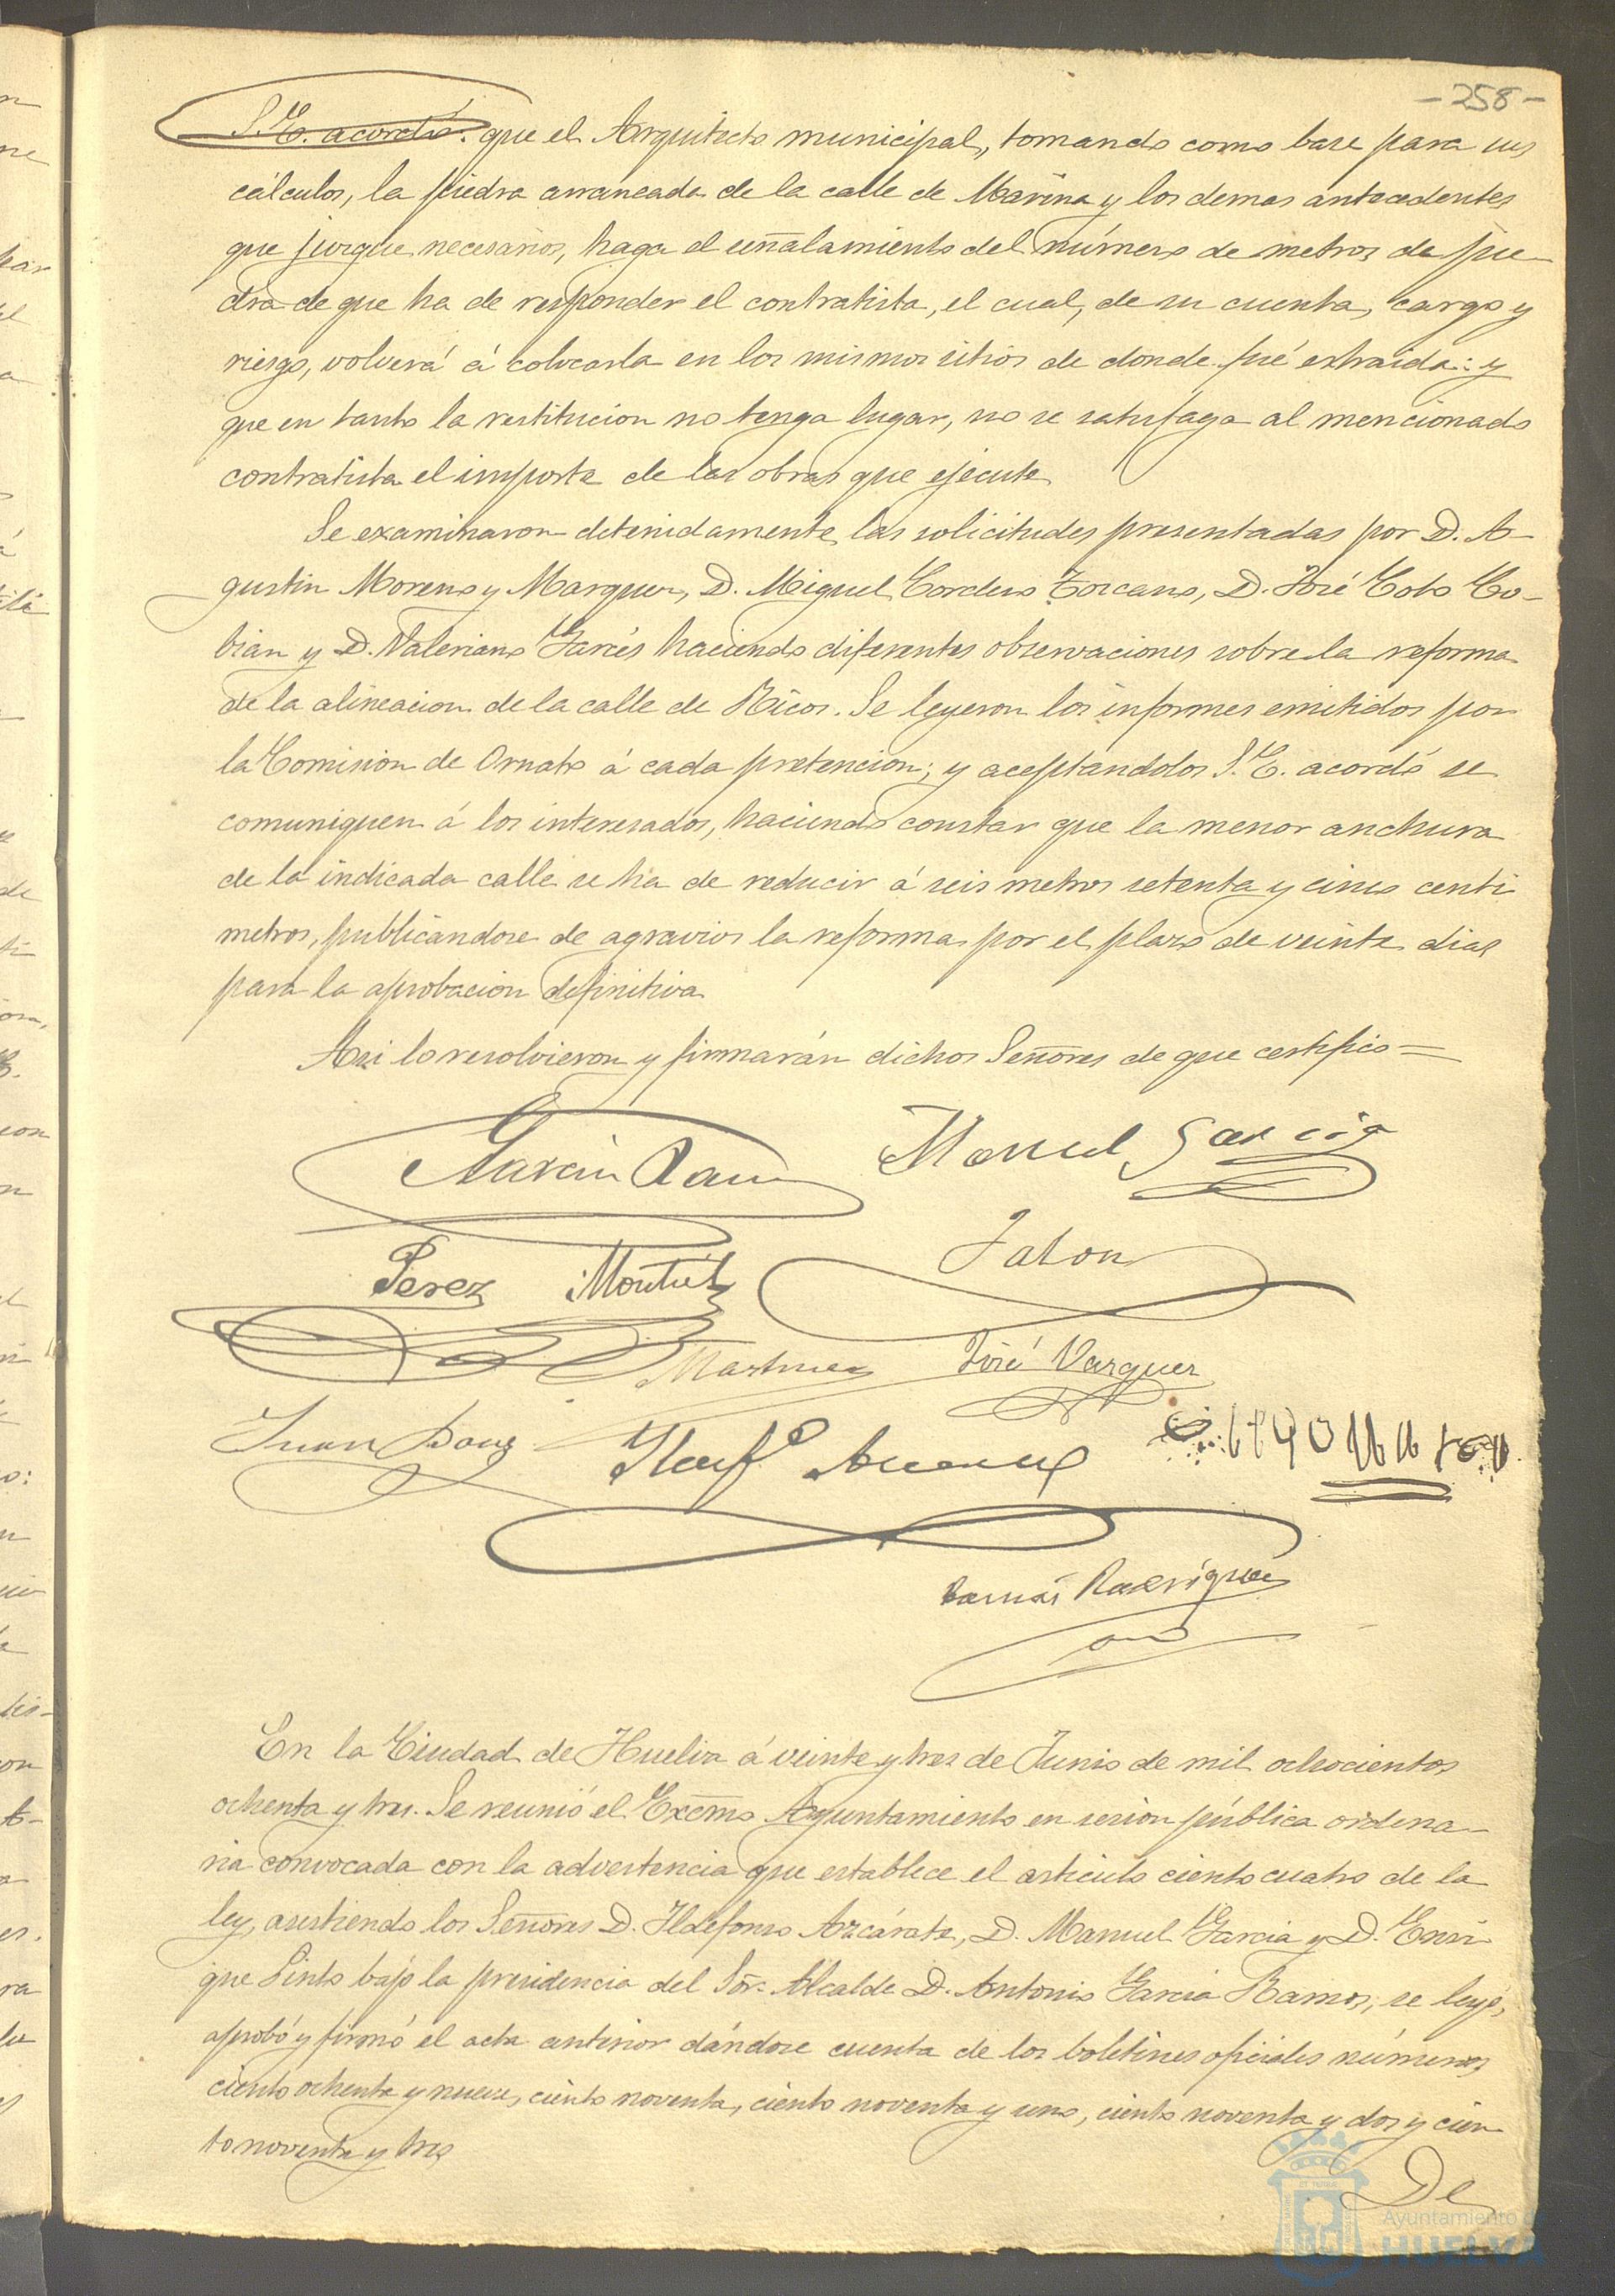 - 258 -
S. E. acordó: que el Arquitecto municipal, tomando como base para sus
cálculos, la piedra arrancada de la calle de Marina y los demas antecedentes
que juzgue necesarios, haga el señalamiento del número de metros de pie-
dra de que ha de responder el contratista, el cual, de su cuenta, cargo y
riesgo, volverá á colocarla en los mismos sitios de donde fué extraida: y
que en tanto la restitucion no tenga lugar, no se satisfaga al mencionado
contratista el importe de las obras que ejecute
Se examinaron detenidamente las solicitudes presentadas por D. A-
gustin Moreno y Marquez, D. Miguel Cordero Toscano, D. José Coto Co-
bian y D. Valeriano Garcés haciendo diferentes observaciones sobre la reforma
de la alineacion de la calle de Ricos. Se leyeron los informes emitidos por
la Comision de Ornato á cada pretencion; y aceptandolos S. E. acordó se
comuniquen á los interesados, haciendo constar que la menor anchura
de la indicada calle se ha de reducir á seis metros setenta y cinco centi-
metros, publicandose de agravios la reforma por el plazo de veinte dias
para la aprobacion definitiva
Asi lo resolvieron y firmarán dichos Señores de que certifico =
Garcia Ramos Manuel Garcia
Perez Montiel Jalon
Martinez José Vazquez
Juan
Tomás Rodriguez
En la Ciudad de Huelva á veinte y tres de Junio de mil ochocientos
ochenta y tres. Se reunió el Excmo Ayuntamiento en sesion pública ordina-
ria convocada con la advertencia que establece el articulo ciento cuatro de la
ley, asistiendo los Señores D. Ildefonso Azcárate, D. Manuel Garcia y D. Enri-
que Pinto bajo la presidencia del Sor. Alcalde D. Antonio Garcia Ramos, se leyó,
aprobó y firmó el acta anterior dándose cuenta de los boletines oficiales números
ciento ochenta y nueve, ciento noventa, ciento noventa y uno, ciento noventa y dos y cien-
to noventa y tres
De
Ayuntamiento de
HUELVA